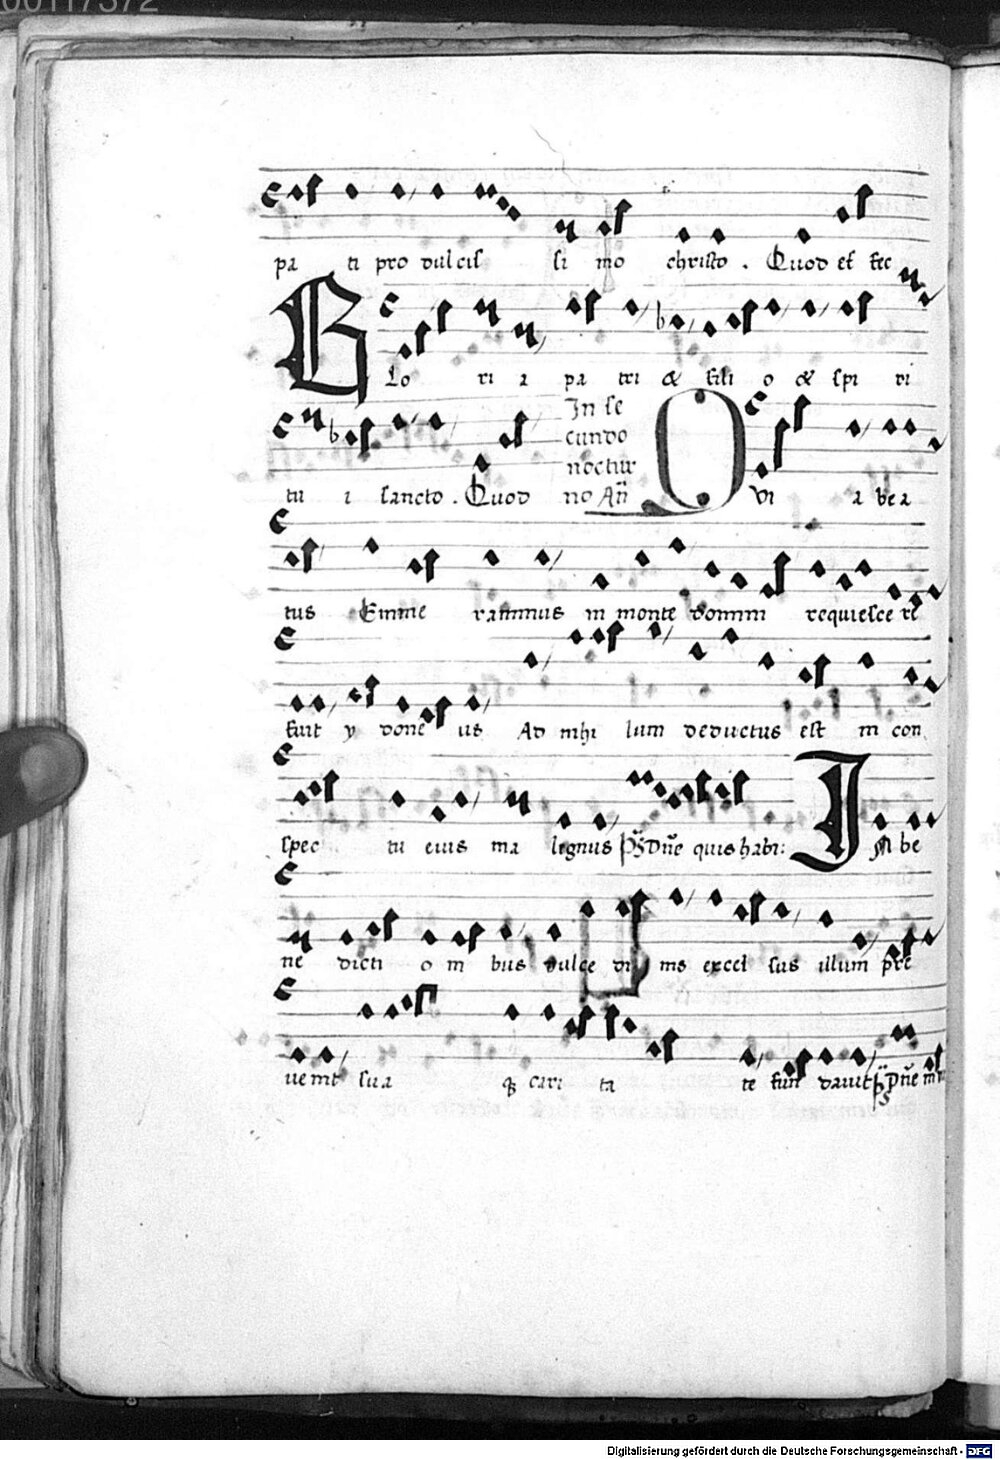 00117372
pa ti pro dulcis si mo christo . Quod es fec
Glo ri a pa tri & fili o & spi ri
tu i sancto . Quod
In se
cundo
noctur
no Añ
Qvi a be a
tus Emme rammus in monte domini requiesce re
fuit y done us Ad nihi lum deductus est in con
spec tu eius ma lignus p̃s Dñe quis habi:
IN be
ne dicti o m bus dulce di ms excel sus illum pre
uenit sua q; cari ta te fun dauit p̃s Dñe
Digitalisierung gefördert durch die Deutsche Forschungsgemeinschaft - DFG